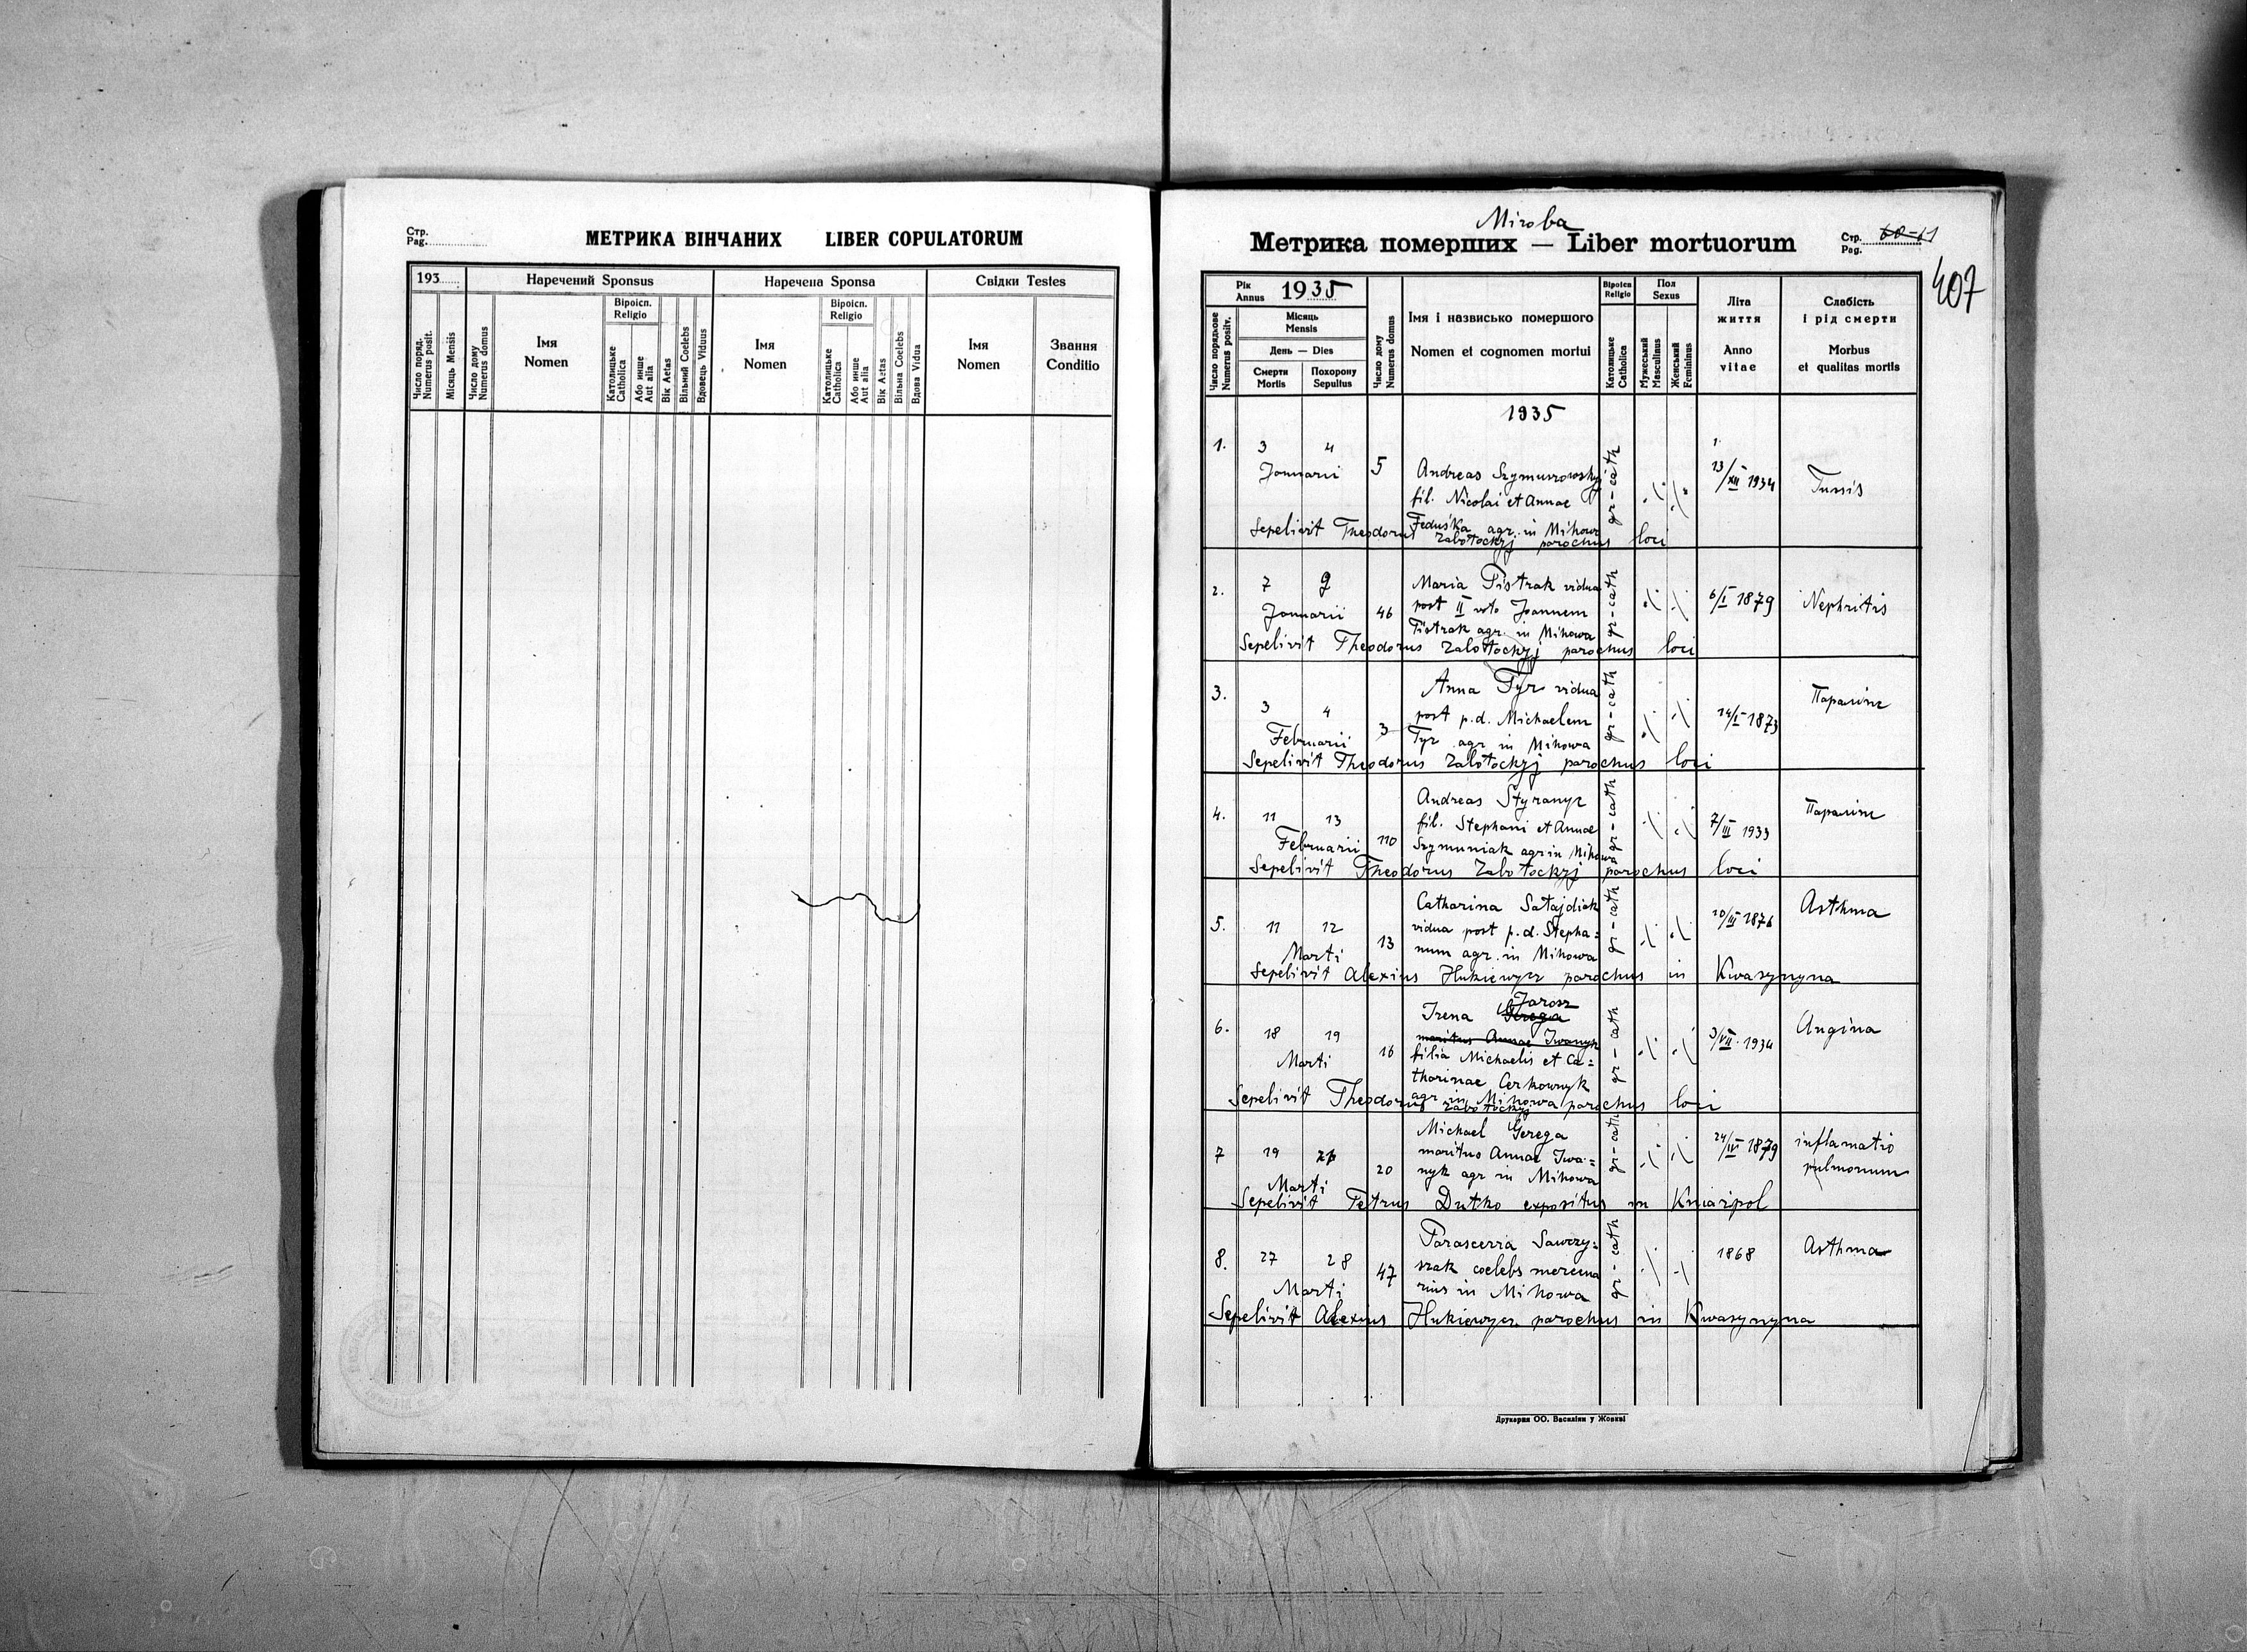 Стр.
Pag.
МЕТРИКА ВІНЧАНИХ LIBER COPULATORUM
193
Наречений Sponsus
Наречена Sponsa
Свідки Testes
Число поряд.
Numerus posit.
Місяць Mensis
Число дому
Numerus domus
Імя
Nomen
Віроісп.
Religio
Католицьке
Catholica
Або инше
Aut alia
Вік Aetas
Вільний Coelebs
Вдовець Viduus
Імя
Nomen
Віроісп.
Religio
Католицьке
Catholica
Або инше
Aut alia
Вік Aetas
Вільна Coelebs
Вдова Vidua
Імя
Nomen
Звання
Conditio
Miroba
Метрика померших — Liber mortuorum
Стр.
Pag.
407
Рік
Annus 1935
Число порядкове
Numerus positv.
Місяць
Mensis
День — Dies
Смерти
Mortis
Похорону
Sepultus
Число дому
Numerus domus
Імя і назвисько помершого
Nomen et cognomen mortui
Віроісп
Religio
Католицьке
Catholica
Пол
Sexus
Мужеський
Masculinus
Женський
Femininus
Літа
життя
Anno
vitae
Слабість
і рід смерти
Morbus
et qualitas mortis
1935
1. 3 4
Januarii 5
Andreas
fil. Nicolai et Annae
Feduśka agr. in Mihowa
gr-cath
1.
13/XII 1934
Tussis
Sepelivit Theodorus Zabotockyj parochus loci
2. 7 9
Januarii 46
Maria Pistrak vidua
post II voto Joannem
Pistrak agr. in Mihowa
gr-cath
6/I 1879
Nephritis
Sepelivit Theodorus Zabotockyj parochus loci
3. 3 4
Februarii 3
Anna Tyr vidua
post p.d. Michaelem
Tyr agr in Mihowa
gr-cath
14/I 1873
Sepelivit Theodorus Zabotockyj parochus loci
4. 11 13
Februarii 110
Andreas Styranyz
fil. Stephani et Annae
Szymuniak agr in Mihowa
gr-cath
7/III 1933
Sepelivit Theodorus Zabotockyj parochus loci
5. 11 12
Marti 13
Catharina Satajdiak
vidua post p.d. Stepha=
num agr. in Mihowa
gr-cath
1876
Asthma
Sepelivit Alexius Hukiewycz parochus in Kwasynyna
6. 18 19
Marti 16
Jarosz
Irena Gerega
maritus Annae Iwanyk
filia Michaelis et Ca=
tharinae Cerkownyk
agr in Mihowa
gr-cath
3/VII. 1934
Angina
Sepelivit Theodorus Zabotockyj parochus loci
7 19
Marti 20
Michael Gerega
maritus Annae Iwa=
nyk agr in Mihowa
gr-cath
24/IV 1879
inflamatio
pulmonum
Sepelivit Petrus Dutko expositus in
8. 27 28
Marti 47
Parascevia Sawczy=
szak coelebs mercena
rius in Mihowa
gr-cath
1868
Asthma
Sepelivit Alexius Hukiewycz parochus in Kwasynyna
Друкарня ОО. Василіян у Жовкві